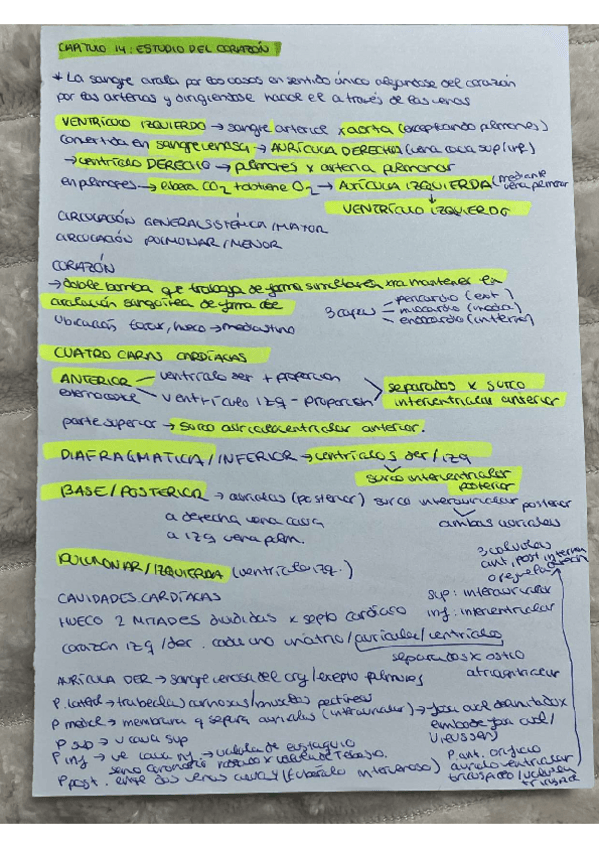 CAPÍTULO 14: ESTUDIO DEL CORAZÓN
* La sangre circula por los vasos en sentido único alejandose del corazón
por las arterias y dirigiendose hacia el a través de las venas
VENTRÍCULO IZQUIERDO → sangre arterial x aorta (exceptuando pulmones)
convertida en sangre venosa → AURÍCULA DERECHA (vena cava sup/inf)
→ ventrículo DERECHO → pulmones x arteria pulmonar
en pulmones → libera CO2 + obtiene O2 → AURÍCULA IZQUIERDA (mediante vena pulmonar
VENTRÍCULO IZQUIERDO
CIRCULACIÓN GENERAL SISTÉMICA/MAYOR
CIRCULACIÓN PULMONAR/MENOR
CORAZÓN
→ doble bomba que trabaja de forma simultanea xra mantener la
circulación sanguínea de forma
3 capas
pericardio (ext)
miocardio (media)
endocardio (interior)
Ubicación torax, hueco → mediastino
CUATRO CARAS CARDÍACAS
ANTERIOR
ventrículo der + proporcion
ventrículo izq - proporción
separados x surco
interventricular anterior
parte superior → surco auriculoventricular anterior.
DIAFRAGMATICA/INFERIOR → ventrículos der/izq
surco interventricular
posterior
BASE/POSTERIOR → auriculas (posterior) surco interauricular posterior
ambas auriculas
a derecha vena cava
a izq vena pulm.
PULMONAR/IZQUIERDA (ventrículo izq.)
3 valvulas
ant, post,
CAVIDADES CARDÍACAS
sup: interauricular
inf: interventricular
HUECO 2 MITADES divididas x septo cardíaco
corazón izq/der. cada uno atrio/auricula/ventriculo
separados x ostio
atrioventricular
AURÍCULA DER → sangre venosa del org/excepto pulmones
P. lateral → trabeculas carnosas/musculos pectineos
P medial → membrana q separa auriculas (interauricular) → fosa oval delimitada x
Vieussens
P sup → v cava sup
P inf → ve cava inf. → valvula de eustaquio
seno coronario x valvula de Tebesio.
P post. entre dos venas cavas (tubérculo intervenoso)
P. ant. orificio
auriculoventricular
tricuspideo/valvula
tricuspide